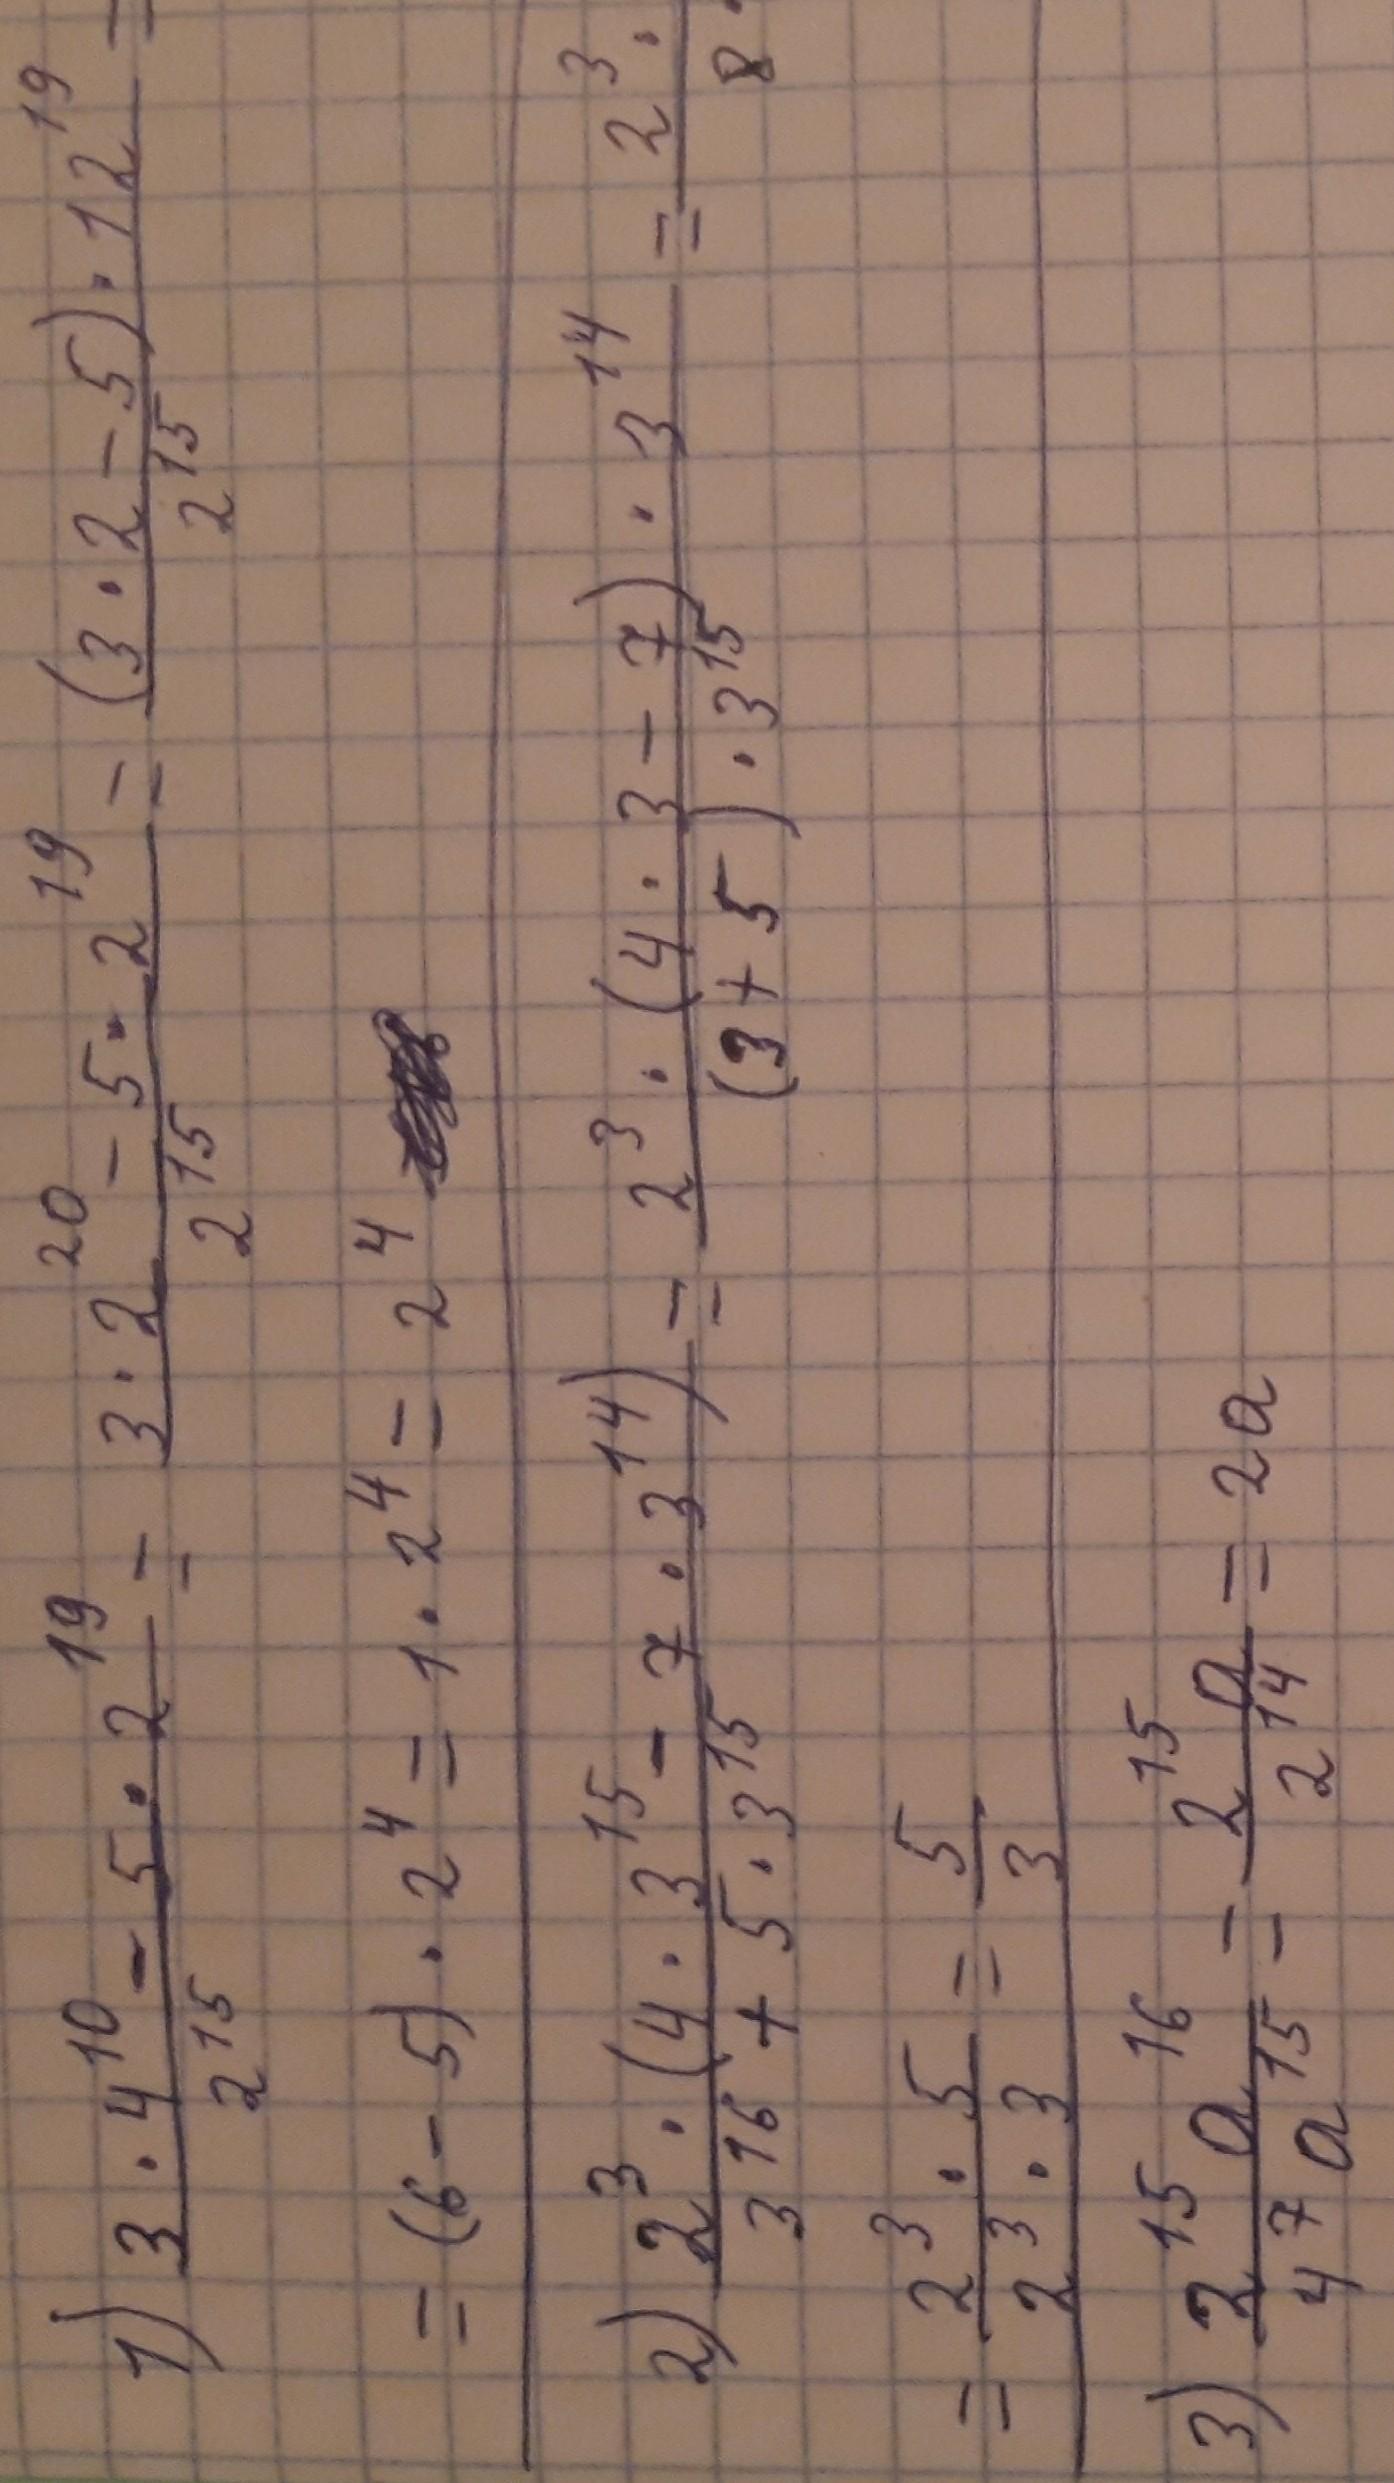 1) (3 · 4^10 - 5 · 2^19) / 2^15 = (3 · 2^20 - 5 · 2^19) / 2^15 = ((3 · 2 - 5) · 12^19) / 2^15 =
= (6 - 5) · 2^4 = 1 · 2^4 = 2^4
2) (2^3 · (4 · 3^15 - 7 · 3^14)) / (3^16 + 5 · 3^15) = (2^3 · (4 · 3 - 7) · 3^14) / ((3 + 5) · 3^15) = 2^3 · / 8 ·
= (2^3 · 5) / (2^3 · 3) = 5 / 3
3) (2^15 a^16) / (4^7 a^15) = (2^15 a) / 2^14 = 2a